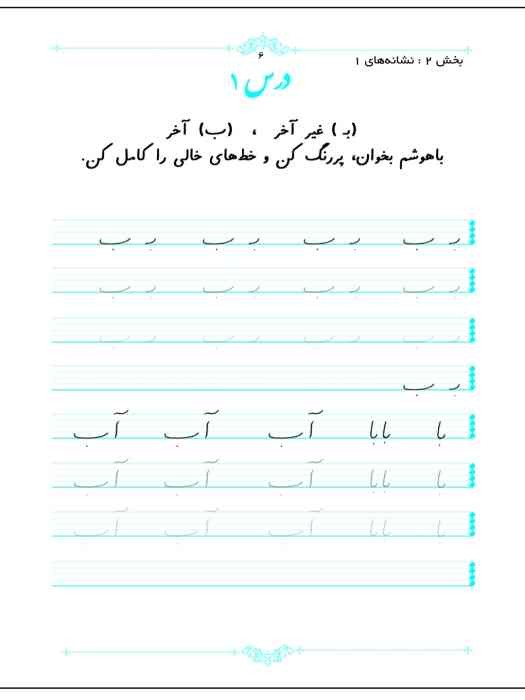 ۶
بخش ۲ : نشانه‌های ۱
درس ۱
(بـ) غیر آخر ، (ب) آخر
باهوشم بخوان، پررنگ کن و خط‌های خالی را کامل کن.
بـ ب بـ ب بـ ب بـ ب
بـ ب بـ ب بـ ب بـ ب
بـ ب بـ ب بـ ب بـ ب
بـ ب
با بابا آب آب آب
با بابا آب آب آب
با بابا آب آب آب